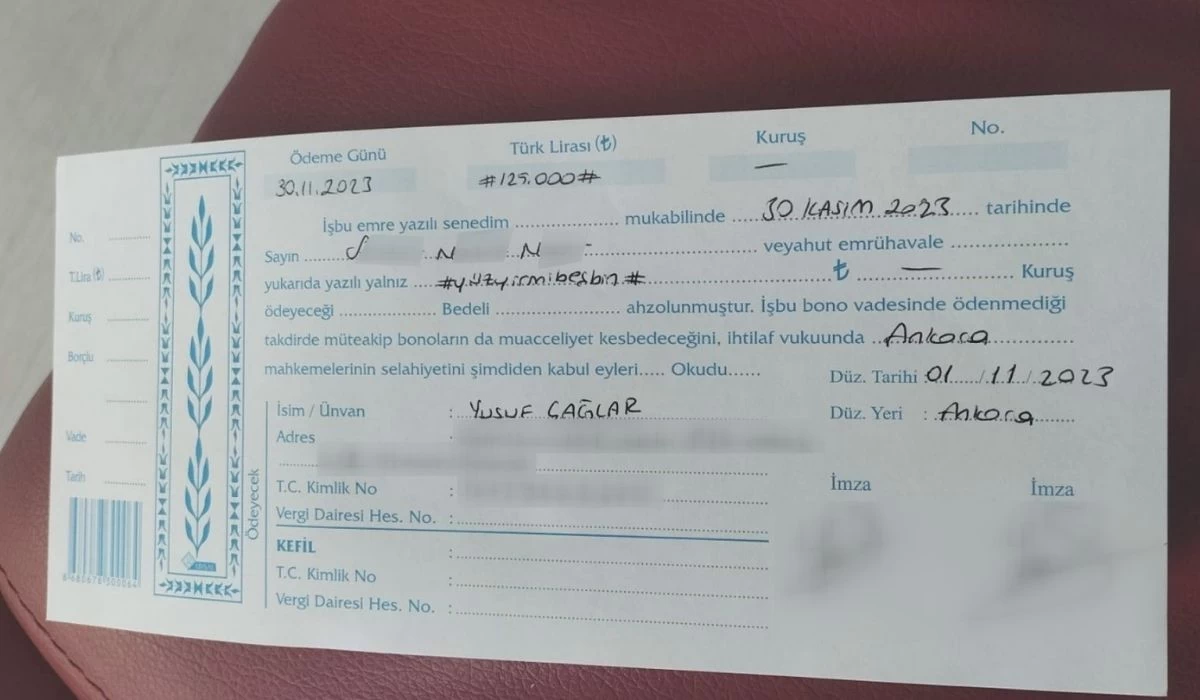 Ödeme Günü Türk Lirası (₺) Kuruş No.
30.11.2023 #125.000# —
İşbu emre yazılı senedim .................... mukabilinde ..... 30 KASIM 2023 ..... tarihinde
Sayın ........ veyahut emrühavale ....................
yukarıda yazılı yalnız .... #yüzyirmibeşbin# .................... ₺ .... — .... Kuruş
ödeyeceği .................... Bedeli .................... ahzolunmuştur. İşbu bono vadesinde ödenmediği
takdirde müteakip bonoların da muacceliyet kesbedeceğini, ihtilaf vukuunda .. Ankara ....................
mahkemelerinin selahiyetini şimdiden kabul eyleri..... Okudu......
Düz. Tarihi 01 / 11 / 2023
Düz. Yeri : Ankara
Ödeyecek
İsim / Ünvan : YUSUF ÇAĞLAR
Adres :
T.C. Kimlik No :
Vergi Dairesi Hes. No. :
KEFİL :
T.C. Kimlik No :
Vergi Dairesi Hes. No. :
İmza İmza
No. ..........
T.Lira (₺) ..........
Kuruş ..........
Borçlu ..........
Vade ..........
Tarih ..........